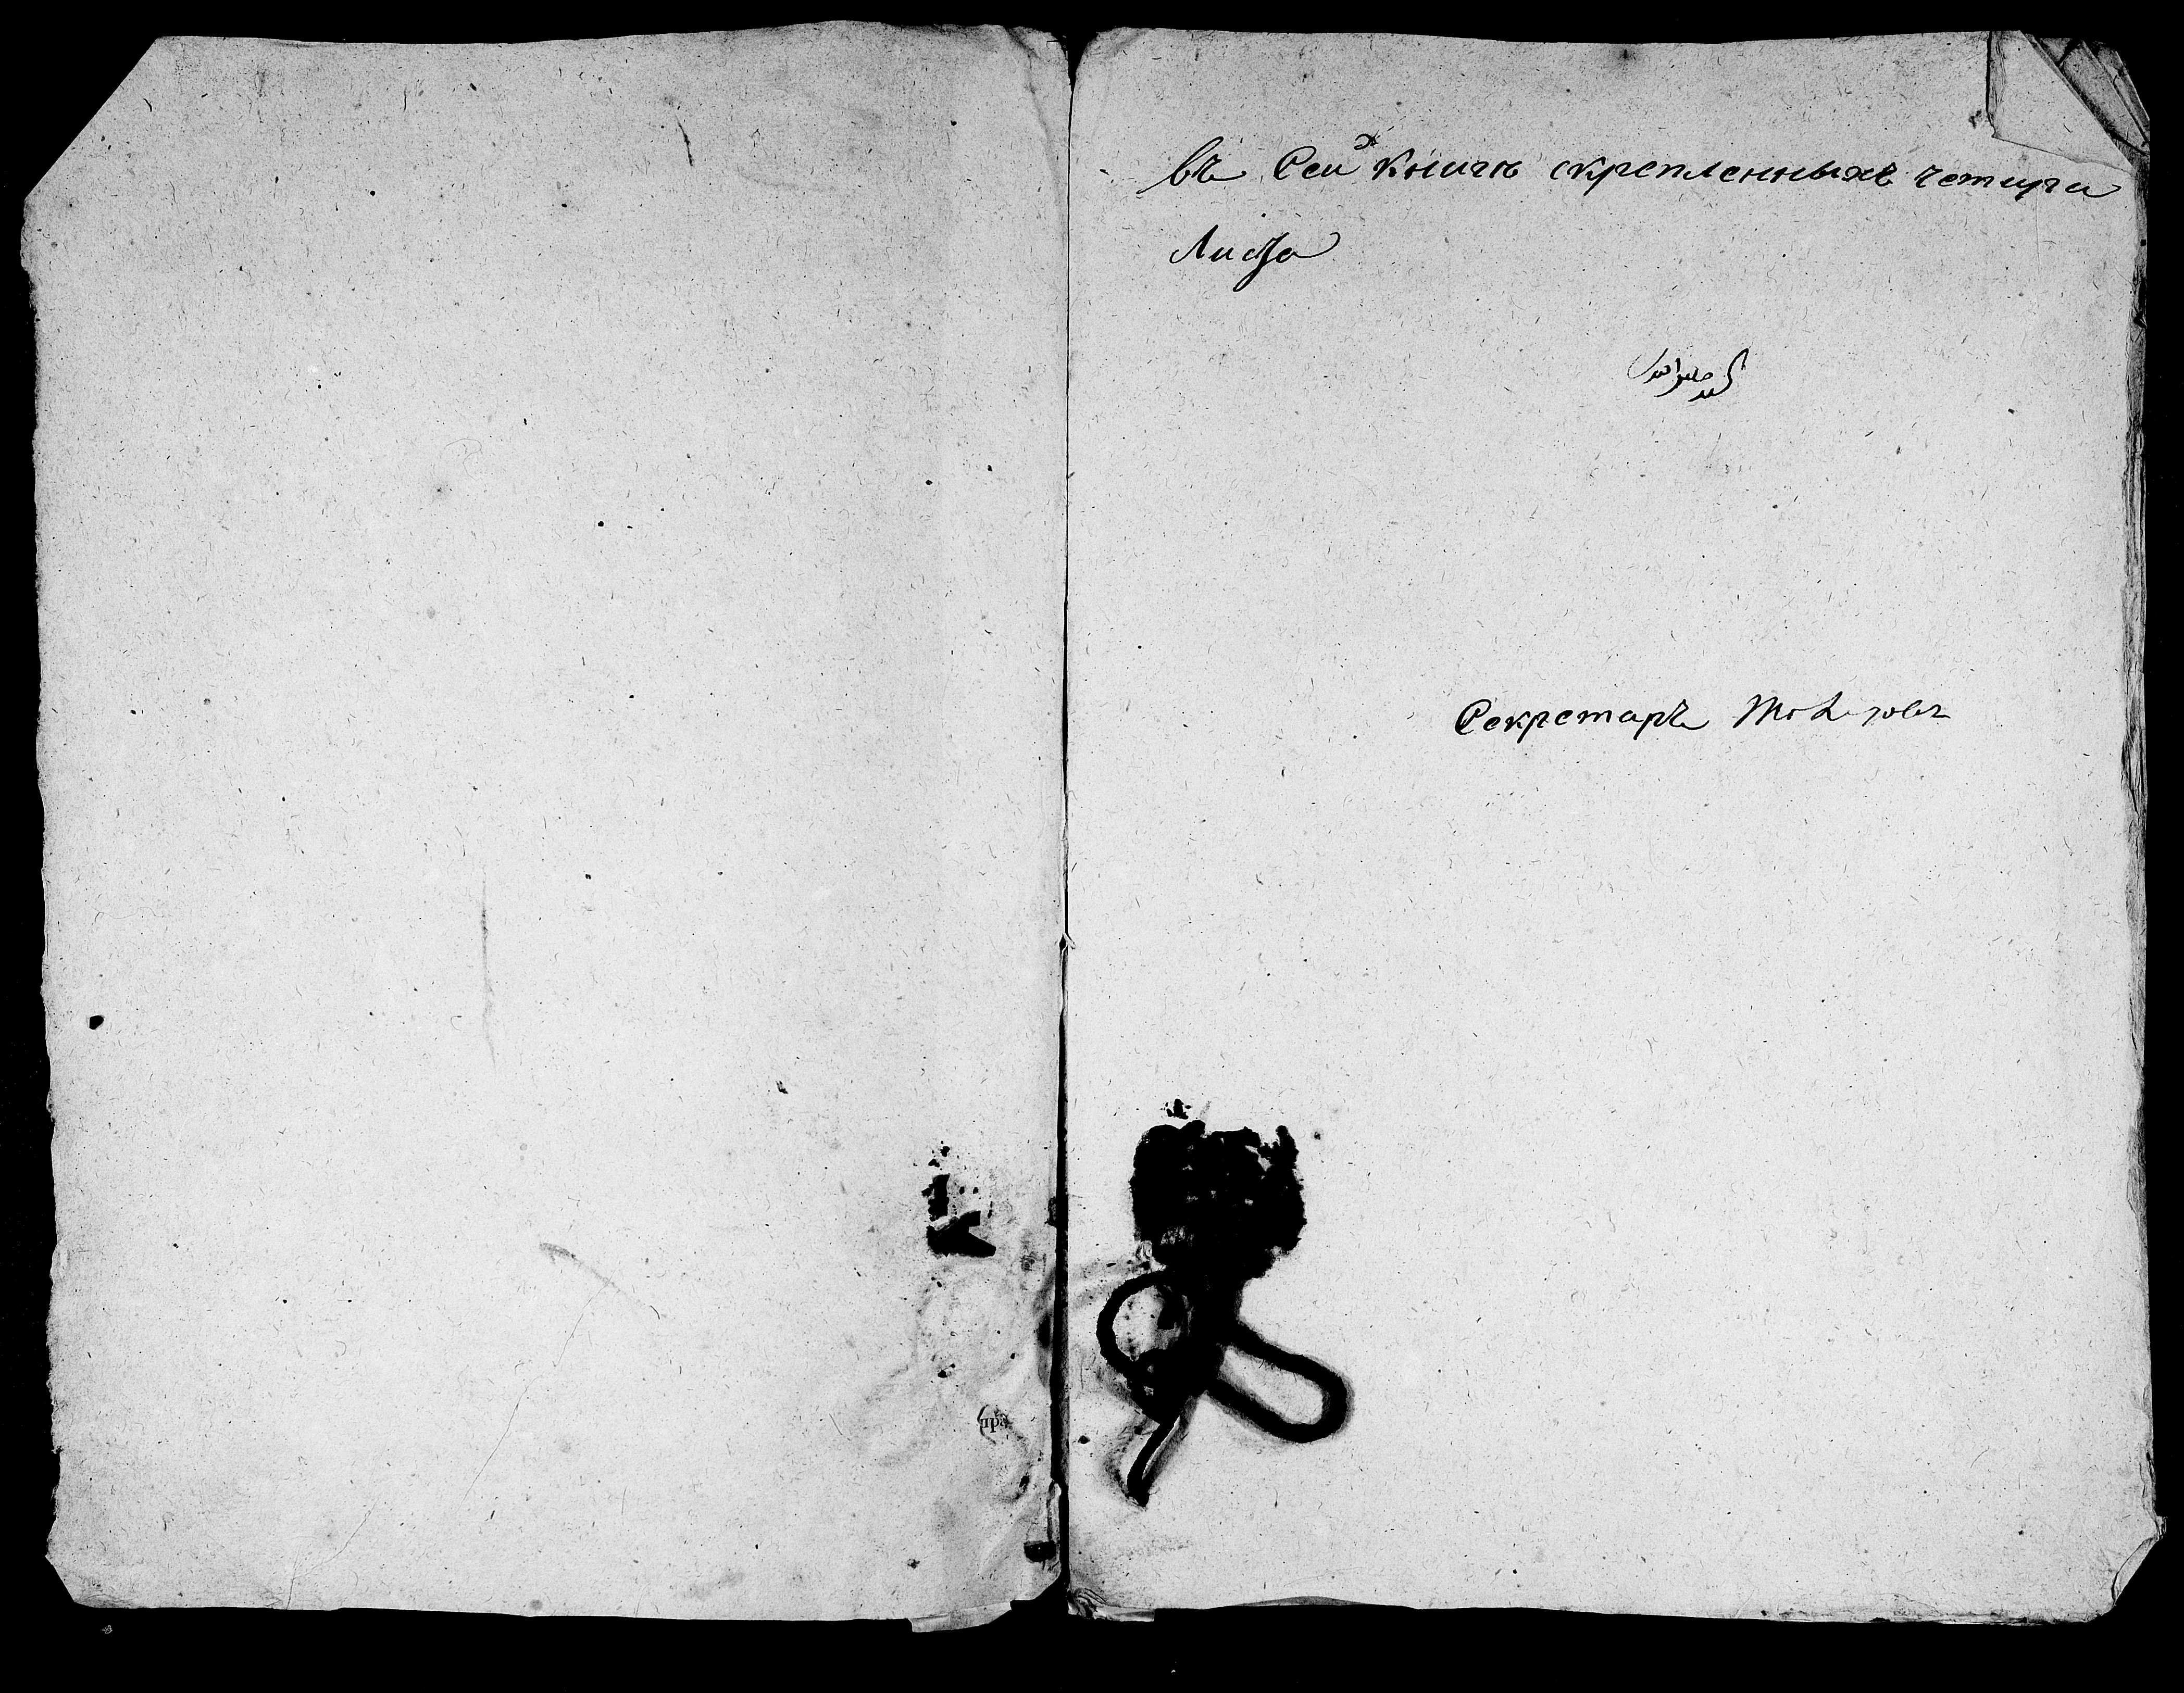 въ Сей книги скрепленныхъ четыри
Листа
Секретаръ
пра